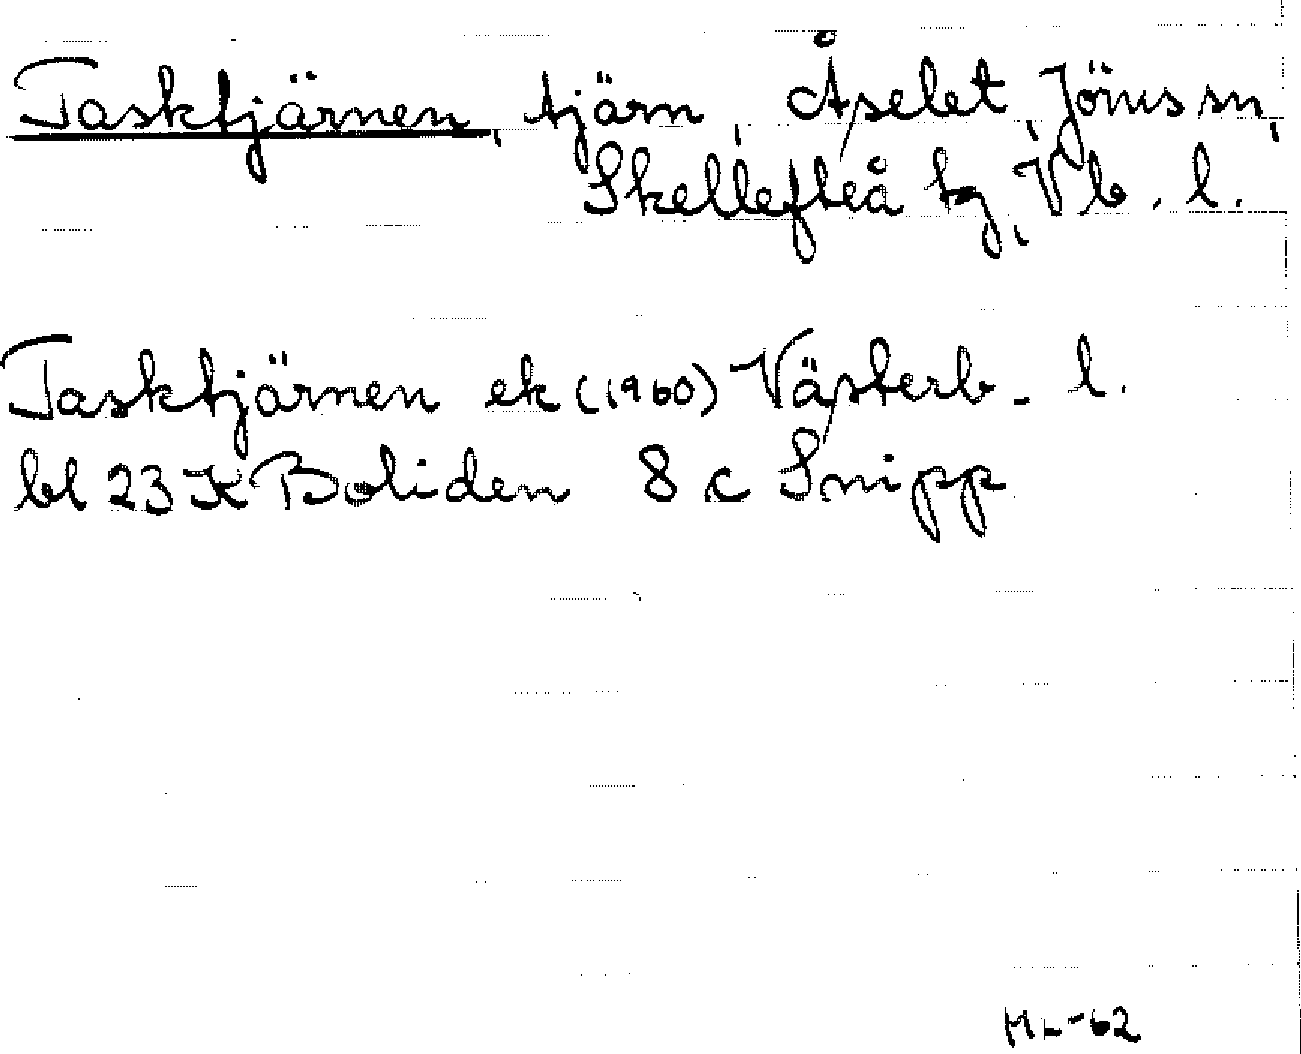 Tasktjärnen, tjärn, Åselet, Jörns sn,
Skellefteå tg, Vb. l.
Tasktjärnen ek (1960) Västerb. l.
bl 23 K Boliden 8 c Snipp
ML-62